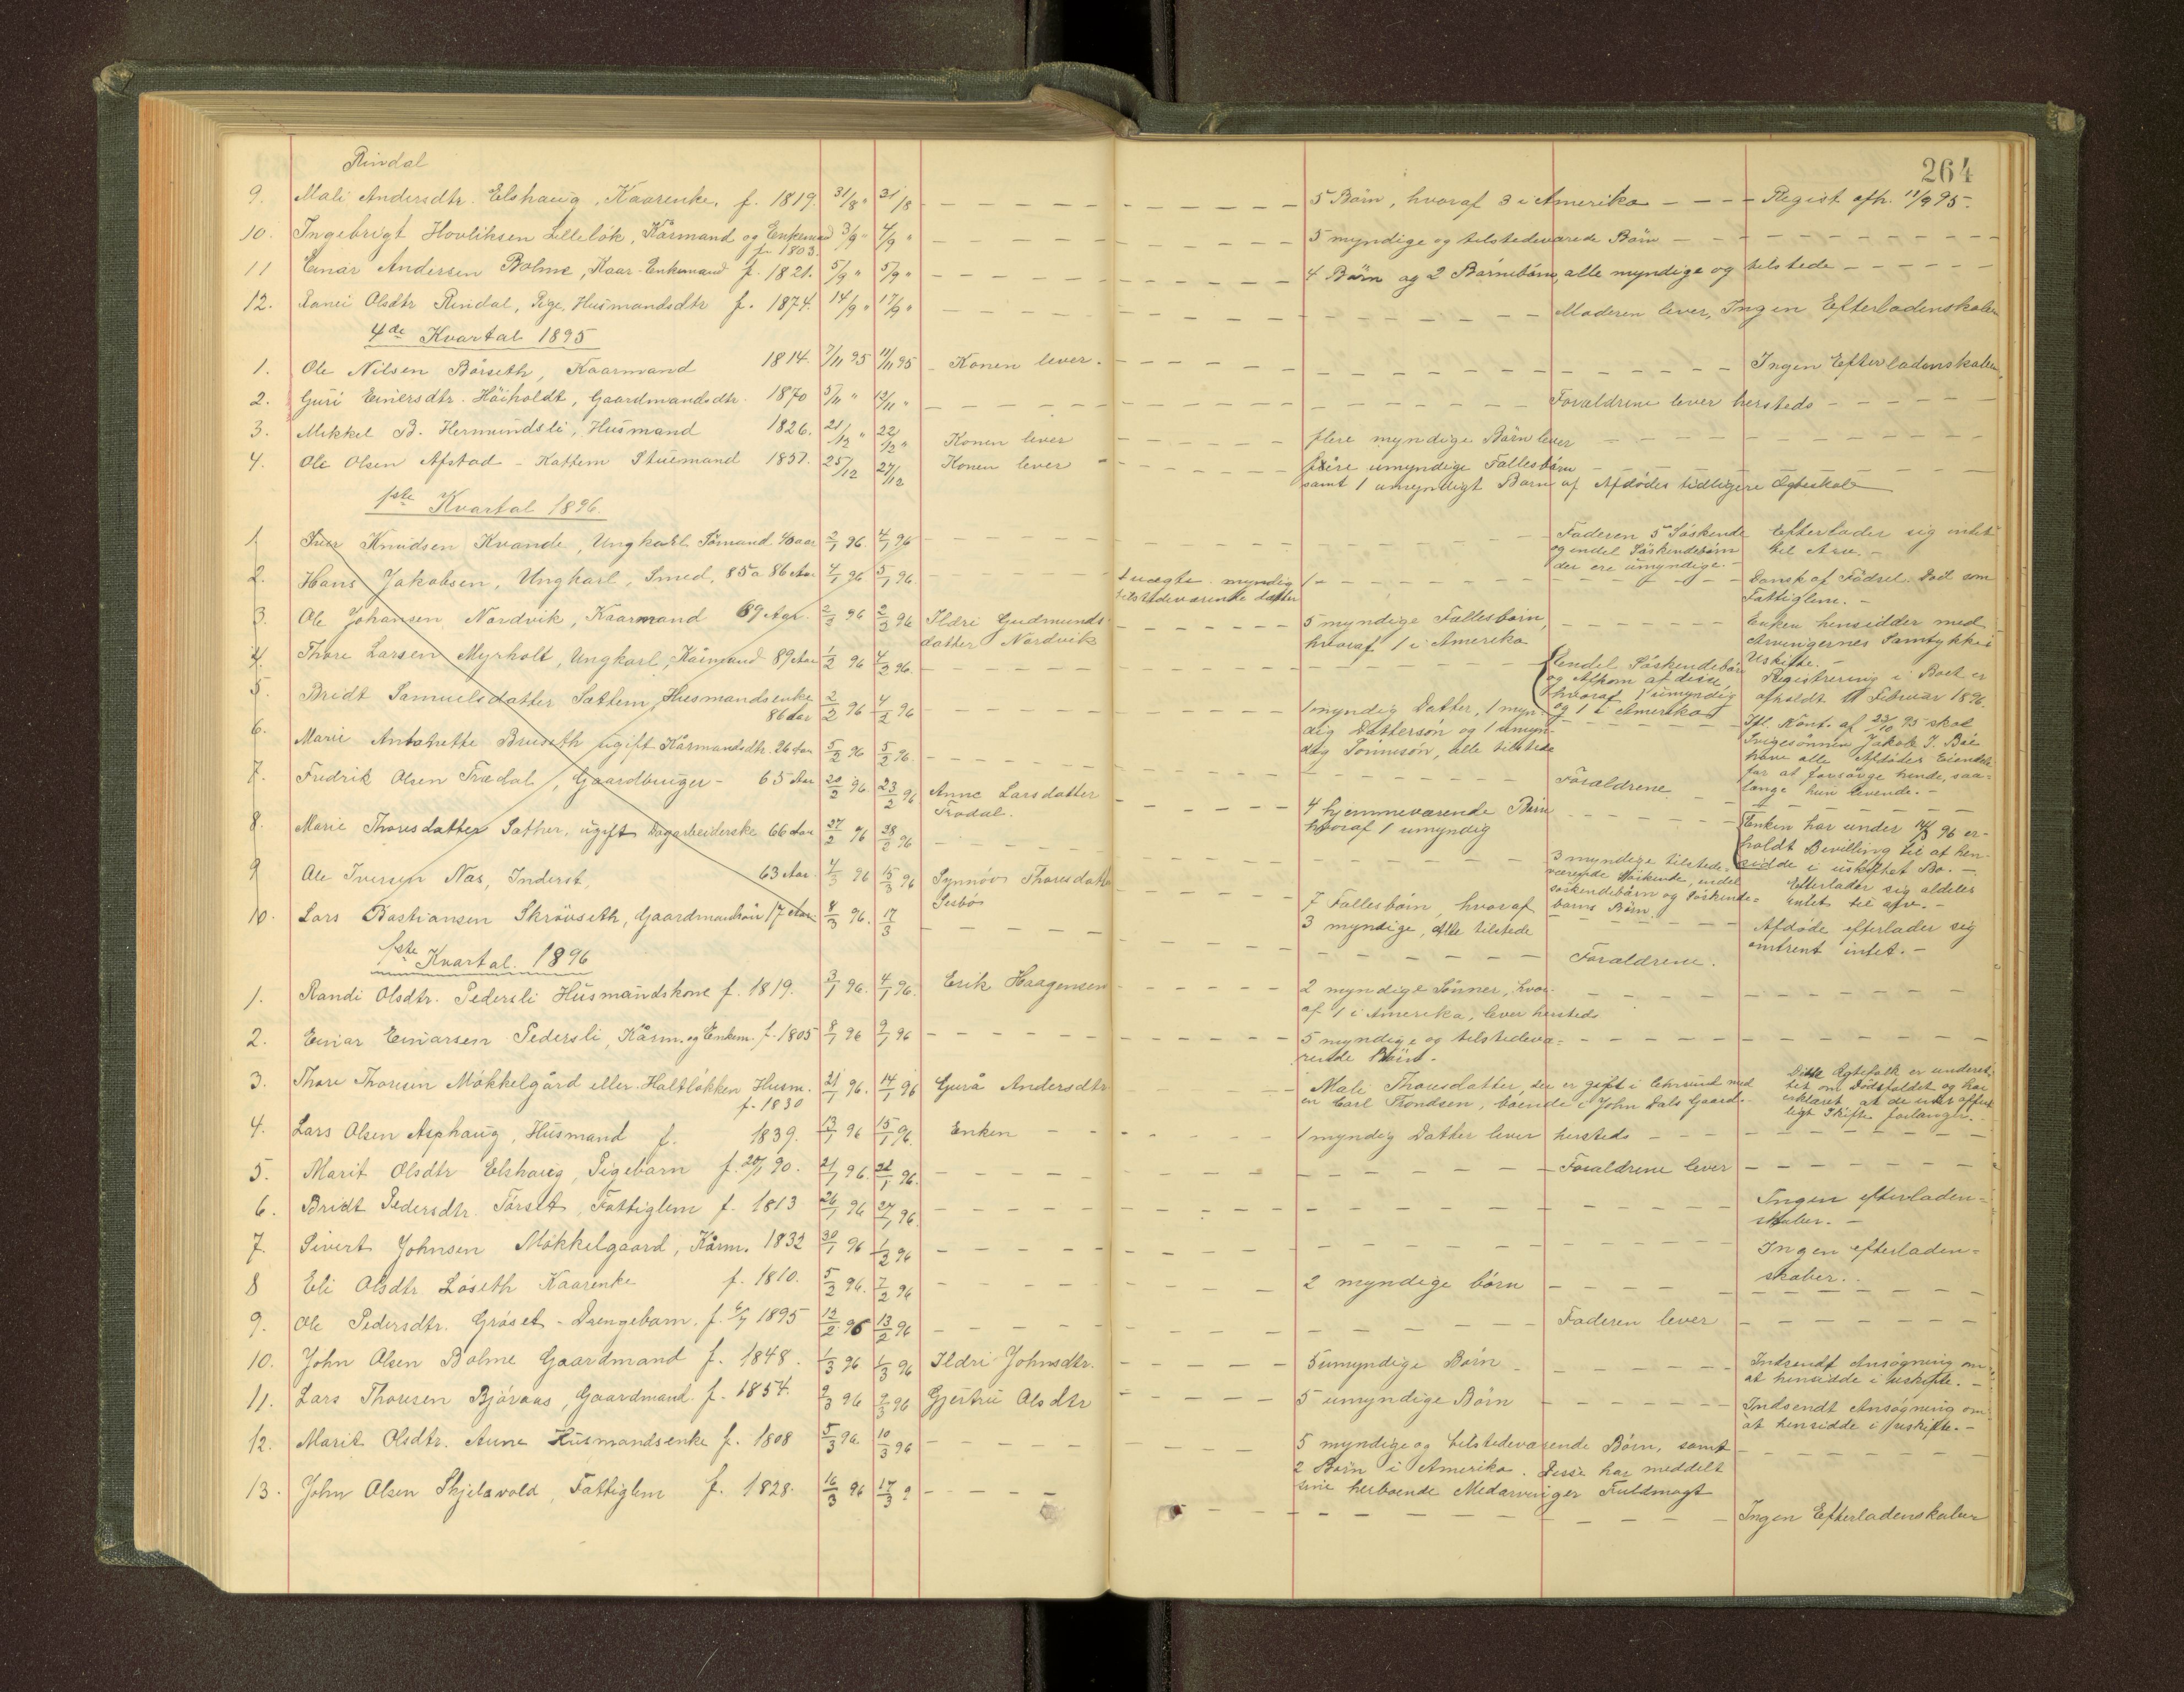 264
Rindal
9. Mali Andersdtr. Elshaug, Kaarenke, f. 1819. 31/8 " 31/8 5 Børn, hvoraf 3 i Amerika Regist afh. 11/9 95.
10. Ingebrigt Hovliksen Lilleløk, Kårmand og Enkemand f. 1803. 3/9 " 4/9 " 5 myndige og tilstedeværede Børn
11 Einar Andersen Bolme, Kaar-Enkemand f. 1821. 5/9 " 5/9 " 4 Børn og 2 Børnebørn, alle myndige og tilstede
12. Olsdtr Rindal, Pige, Husmandsdtr f. 1874. 14/9 " 17/9 " Moderen lever, Ingen Efterladenskaber
4de Kvartal 1895
1. Ole Nilsen Børseth, Kaarmand 1814. 7/11 95 11/11 95 Konen lever. Ingen Efterladenskaber
2. Guri Einersdtr. Høiholdt, Gaardmandsdtr. 1870 5/11 " 12/11 " Forældrene lever hersteds
3. Mikkel B. Hermundsli, Husmand 1826. 21/12 " 22/12 " Konen lever flere myndige Børn lever
4. Ole Olsen Afstad - Kattem Stuemand 1857. 25/12 27/12 Konen lever flere umyndige Fællesbørn
samt 1 umyndigt Barn af Afdødes tidligere Ægteskab
1ste Kvartal 1896.
1 Iver Knudsen Kvande, Ungkarl Sømand 40 aar 2/1 96. 4/1 96 Faderen 5 Söskende og endel Söskendebørn der ere umyndige. - Efterlader sig intet til Arv. -
2. Hans Jakobsen, Ungkarl, Smed, 85 a 86 Aar 4/1 96 5/1 96. 1 uægte myndig tilstedeværende datter Dansk af Födsel. Död som Fattiglem. -
3. Ole Johansen Nordvik, Kaarmand 69 Aar 2/2 96 2/2 96 Ildri Gudmunds-
datter Nordvik 5 myndige Fællesbørn, hvoraf 1 i Amerika Enken hensidder med Arvingernes Samtykke i Uskifte. -
4. Thore Larsen Myrholt, Ungkarl, Kårmand 89 Aar 1/2 96 4/2 96. Endel Söskendebørn og Afkom af disse, hvoraf 1 umyndig og 1 i Amerika Registrering i Boet er afholdt 11 Februar 1896.
5. Bredt Samuelsdatter Sættem, Husmandsenke 86 Aar 2/2 96 4/2 96 1 myndig Datter, 1 myn-
dig Dattersön og 1 umyn-
dig Sönnesön, alle tilstede Ifl. Kont. af 23/10 95 skal Svigesønnen Jakob J. Bæ have alle Afdødes Eiendele for at forsørge hende, saa-
længe hun levende. -
6. Marie Antonette Bruseth ugift Kårmandsdtr. 26 Aar 5/2 96 5/2 96. Forældrene
7. Fredrik Olsen Trædal, Gaardbruger - 65 Aar 20/2 96. 23/2 96 Anne Larsdatter
Trædal. 4 hjemmeværende Børn
hvoraf 1 umyndig Enken har under 14/3 96 er-
holdt Bevilling til at hen-
sidde i uskiftet Bo. -
8. Marie Thoresdatter Sæther, ugift Dagarbeiderske 66 Aar 27/2 96 28/2 96 3 myndige tilstede-
værende Söskende, endel
söskendebørn og Söskende-
barns Børn. Efterlader sig aldeles
Intet til arv. -
9 Ole Iversen Næs, Inderst, 63 Aar. 4/3 96 15/3 96 Synnöv Thoresdatter
Sesbö 7 Fællesbørn, hvoraf
3 myndige, Alle tilstede Afdøde efterlader sig
omtrent intet. -
10. Lars Bastiansen Skrövseth, Gaardmandsön 17 Aar 8/3 96. 17/3 Forældrene.
1ste Kvartal. 1896
1. Randi Olsdtr. Pedersli Husmandskone f. 1819. 3/1 96. 4/1 96. Erik Haagensen 2 myndige Sønner, hvor-
af 1 i Amerika, lever hersteds
2. Einar Einarsen Pedersli, Kårm. og Enkem. f. 1805 8/1 96 9/1 96 5 myndige og tilstedevæ-
rende Børn.
3. Thore Thoresen Møkkelgård eller Haltløkken Husm. f. 1830 21/1 96. 14/1 96 Gurå Andersdtr Mali Thoresdatter, der er gift i Chrsund med
en Carl Trondsen, boende i John Dals Gaard. Dette Ægtefolk er underret-
tet om Dödsfaldet og har
erklæret at de intet offent-
ligt Skifte forlanger.
4. Lars Olsen Asphaug, Husmand f. 1839. 13/1 96 15/1 96. Enken 1 myndig Datter lever hersteds
5. Marit Olsdtr Elshaug, Pigebarn f. 20/1 90. 21/1 96. 22/1 96. Forældrene lever
6. Bridt Pedersdtr. Førset, Fattiglem f. 1813 26/1 96 27/1 96. Ingen efterladen-
skaber. -
7. Sivert Johnsen Møkkelgaard, Kårm. 1832 30/1 96 1/2 96 Ingen efterladen-
skaber.
8 Eli Olsdtr Løseth Kaarenke f. 1810. 5/2 96. 7/2 96 2 myndige børn
9. Ole Pedersdtr. Grøset - Drengebarn. f. 6/7 1895 12/2 96 13/2 96 Faderen lever
10. John Olsen Bolme Gaardmand f. 1848. 1/3 96 1/3 96 Ildri Johnsdtr. 5 umyndige Børn Indsendt Ansøgning om
at hensidde i uskifte. -
11. Lars Thoresen Bjøraas, Gaardmand. f. 1854. 2/3 96 2/3 96 Gjertru Olsdtr 5 umyndige Børn Indsendt Ansøgning om
at hensidde i Uskifte. -
12. Marit Olsdtr. Aune Husmandsenke f. 1808 5/3 96. 10/3 96 5 myndige og tilstedeværende Børn, samt
2 Børn i Amerika. Disse har meddelt
sine herboende Medarvinger Fuldmagt
13. John Olsen Skjelavold, Fattiglem f. 1828. 16/3 96 17/3 Ingen Efterladenskaber